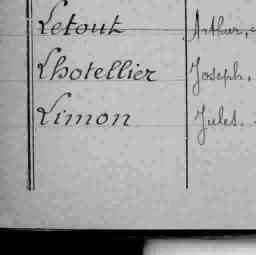 Letout Arthur,
Lhotellier Joseph,
Limon Jules.